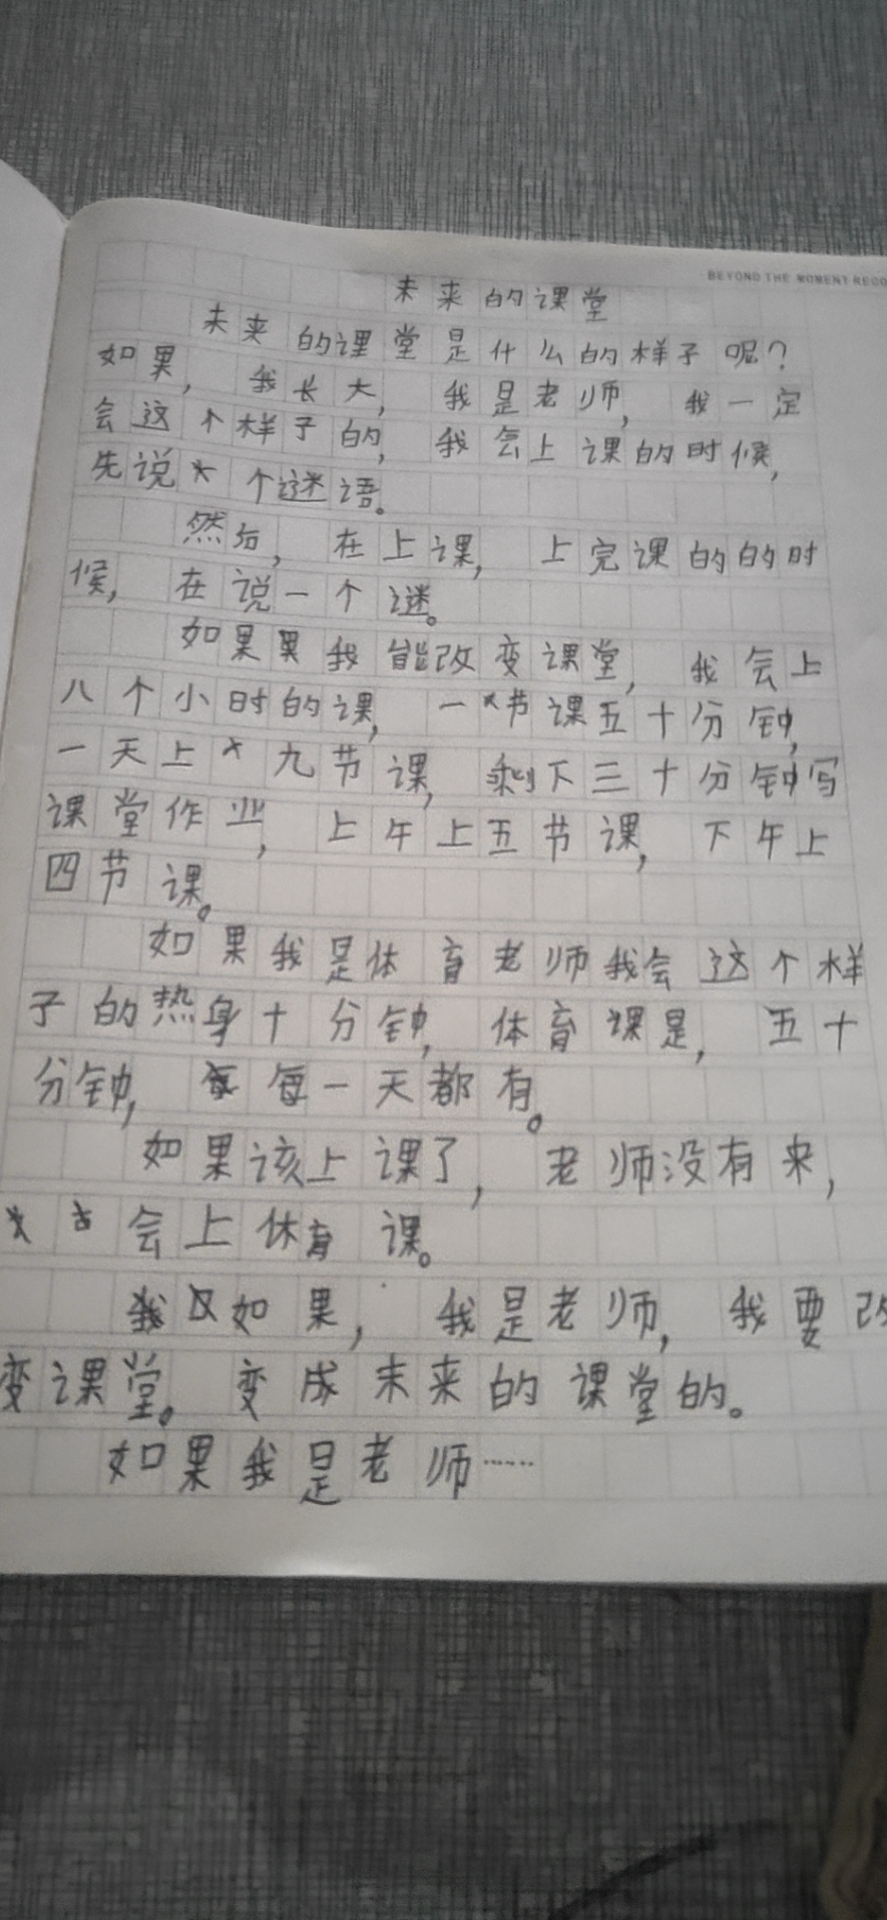 BEYOND THE MOMENT RECO
未来的课堂
未来的课堂是什么的样子呢？
如果，我长大，我是老师，我一定
会这个样子的，我会上课的时候，
先说个谜语。
然后，在上课，上完课的的时
候，在说一个谜。
如果果我能改变课堂，我会上
八个小时的课，一节课五十分钟，
一天上九节课，剩下三十分钟写
课堂作业，上午上五节课，下午上
四节课。
如果我是体育老师我会这个样
子的热身十分钟，体育课是，五十
分钟，每每一天都有。
如果该上课了，老师没有来，
会上体育课。
我又如果，我是老师，我要改
变课堂。变成未来的课堂的。
如果我是老师……